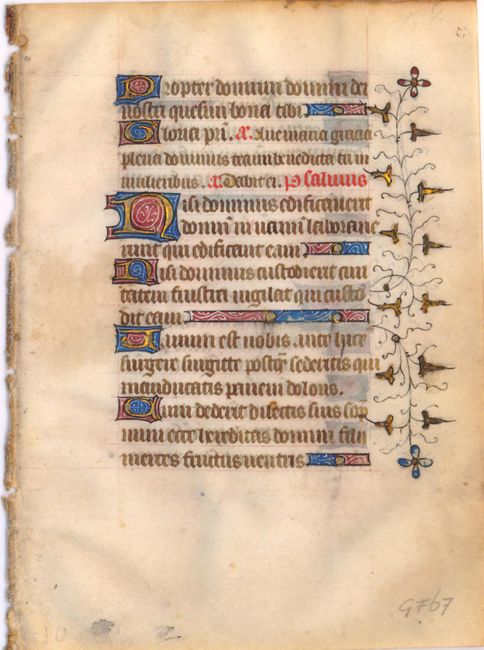 Propter domum domini dei
nostri quesivi bona tibi
Gloria pri. a. Ave maria gracia
plena dominus tecum benedicta tu in
mulieribus. a. Dabit ei. psalmus
Nisi dominus edificaverit
domu in vanu laborave
runt qui edificant eam
Nisi dominus custodierit civi
tatem frustra vigilat qui custo
dit eam
Vanum est vobis ante luce
surgere surgitte postq sederitis qui
manducatis panem doloris.
Cum dederit dilectis suis som
num ecce hereditas domini filii
merces fructus ventris
GF67